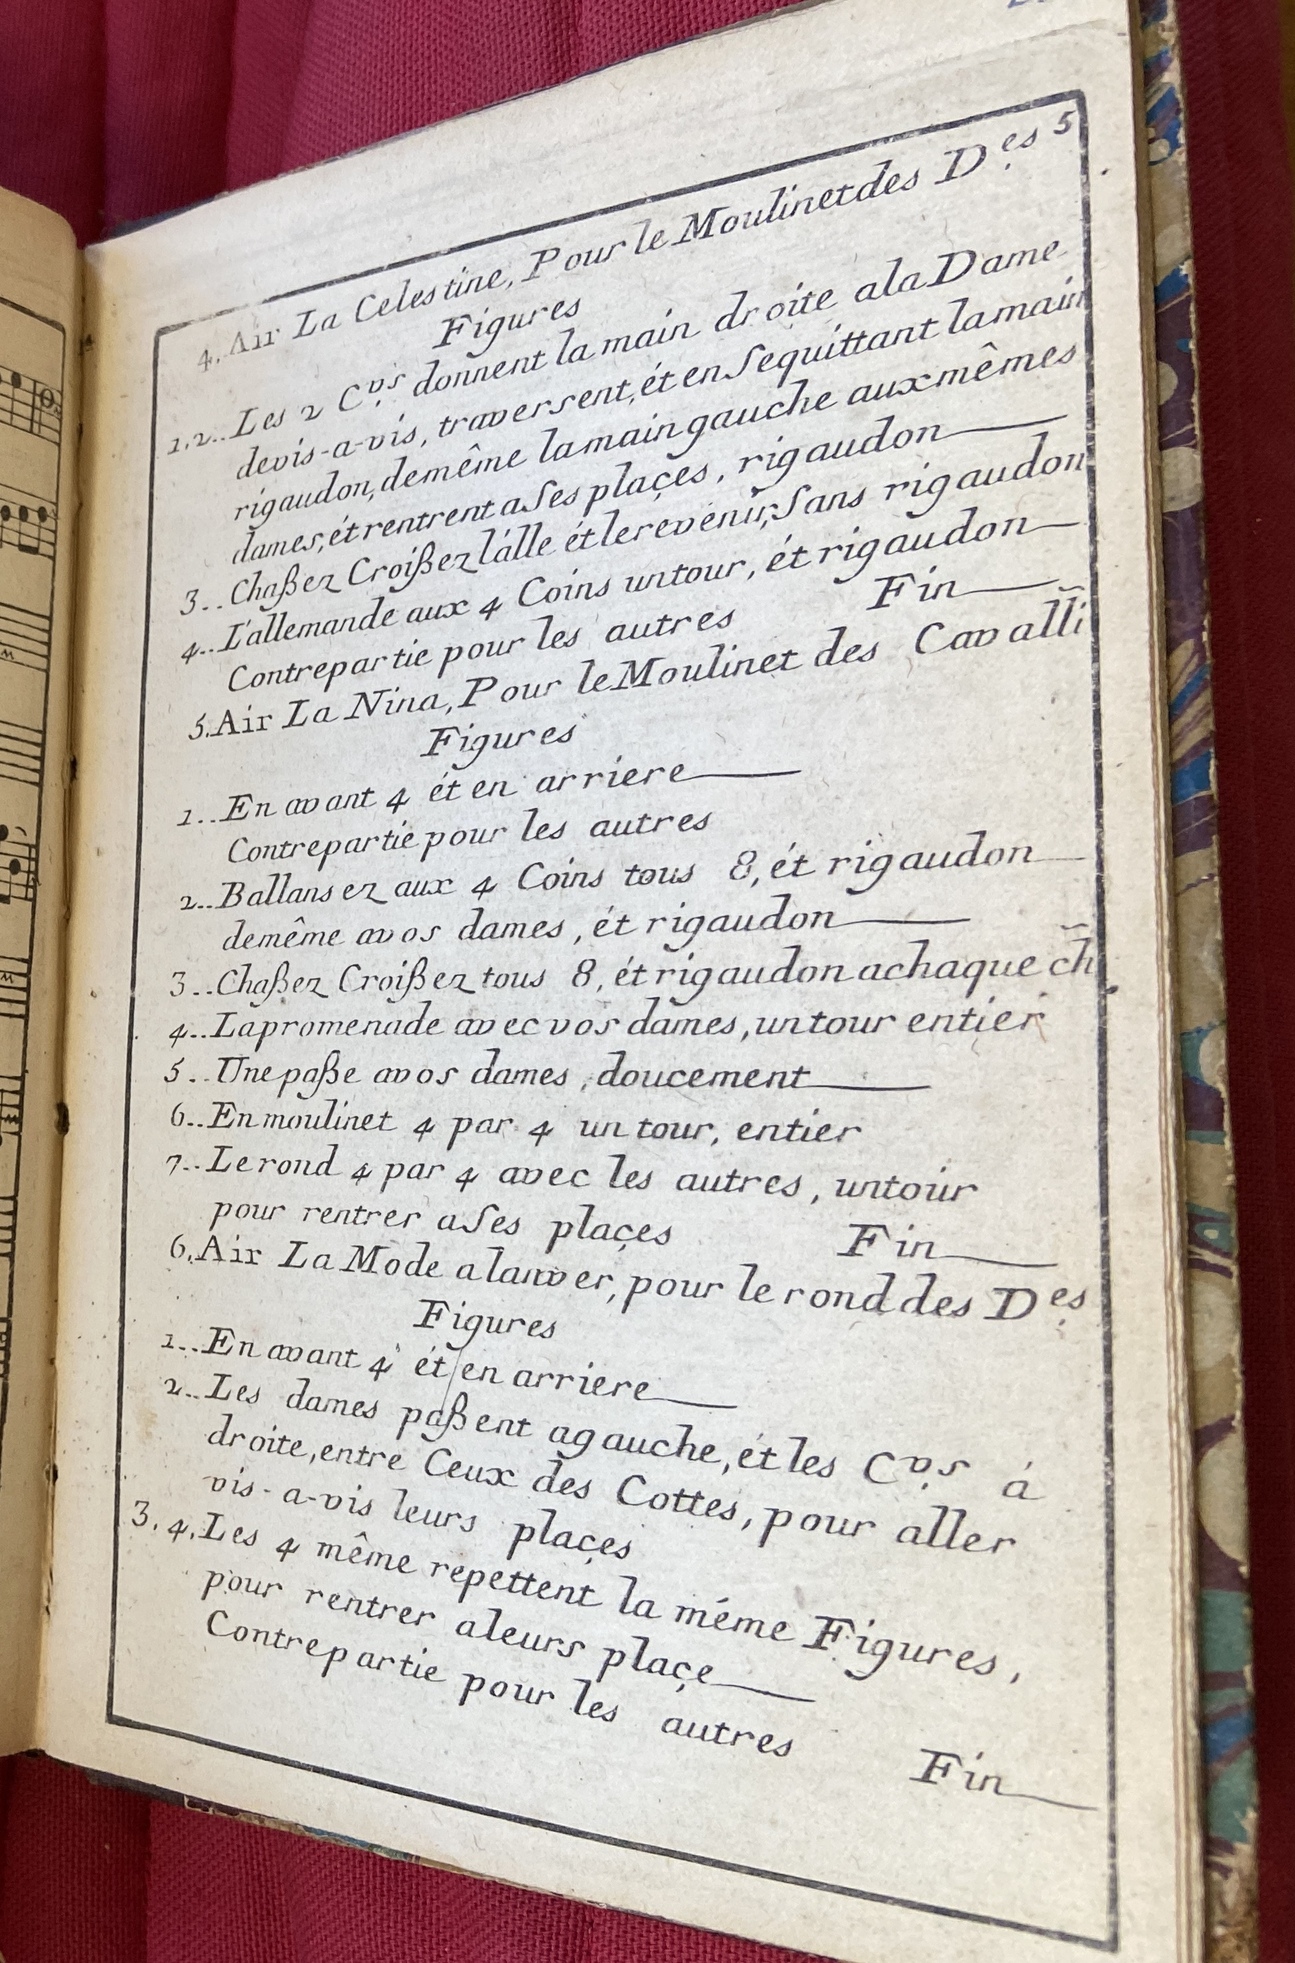 5
4. Air La Celestine, Pour le Moulinet des D.es
Figures
1.2.. Les 2 C.vs donnent la main droite ala Dame
devis-a-vis, traversent, ét en Sequittant la main
rigaudon, demême la main gauche aux mêmes
dames, ét rentrent a Ses plaçes, rigaudon
3.. Chaßez Croißez lálle ét le revenir, Sans rigaudon
4.. L'allemande aux 4 Coins un tour, ét rigaudon
Contrepartie pour les autres Fin
5. Air La Nina, Pour le Moulinet des Cavalli
Figures
1.. En avant 4 ét en arriere
Contrepartie pour les autres
2.. Ballansez aux 4 Coins tous 8, ét rigaudon
demême avos dames, ét rigaudon
3.. Chaßez Croißez tous 8, ét rigaudon achaque ch̃
4.. La promenade avec vos dames, un tour entier
5.. Une paße avos dames, doucement
6.. En moulinet 4 par 4 un tour, entier
7.. Le rond 4 par 4 avec les autres, un tour
pour rentrer a Ses plaçes Fin
6. Air La Mode a lanver, pour le rond des D.es
Figures
1.. En avant 4 ét en arriere
2.. Les dames paßent agauche, ét les C.vs á
droite, entre Ceux des Cottes, pour aller
vis-a-vis leurs plaçes
3.4. Les 4 même repettent la méme Figures,
pour rentrer aleurs plaçe
Contrepartie pour les autres
Fin